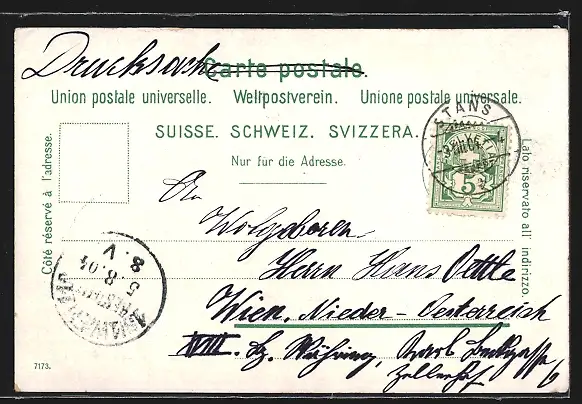 Drucksache Carte postale.
Union postale universelle. Weltpostverein. Unione postale universale.
SUISSE. SCHWEIZ. SVIZZERA.
Nur für die Adresse.
Côté réservé à l'adresse.
Lato riservato all' indirizzo.
STANS
5
An
Wolgeboren
Herrn Hans Oettle
Wien, Nieder-Oesterreich
XVIII. Bz. Währing, Karl Beckgasse
5.8.04
8.V
7173.